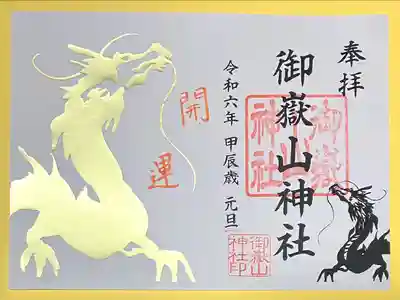 奉拝
御嶽山神社
御嶽
神社
令和六年 甲辰歳 元旦
御嶽山
神社印
開運